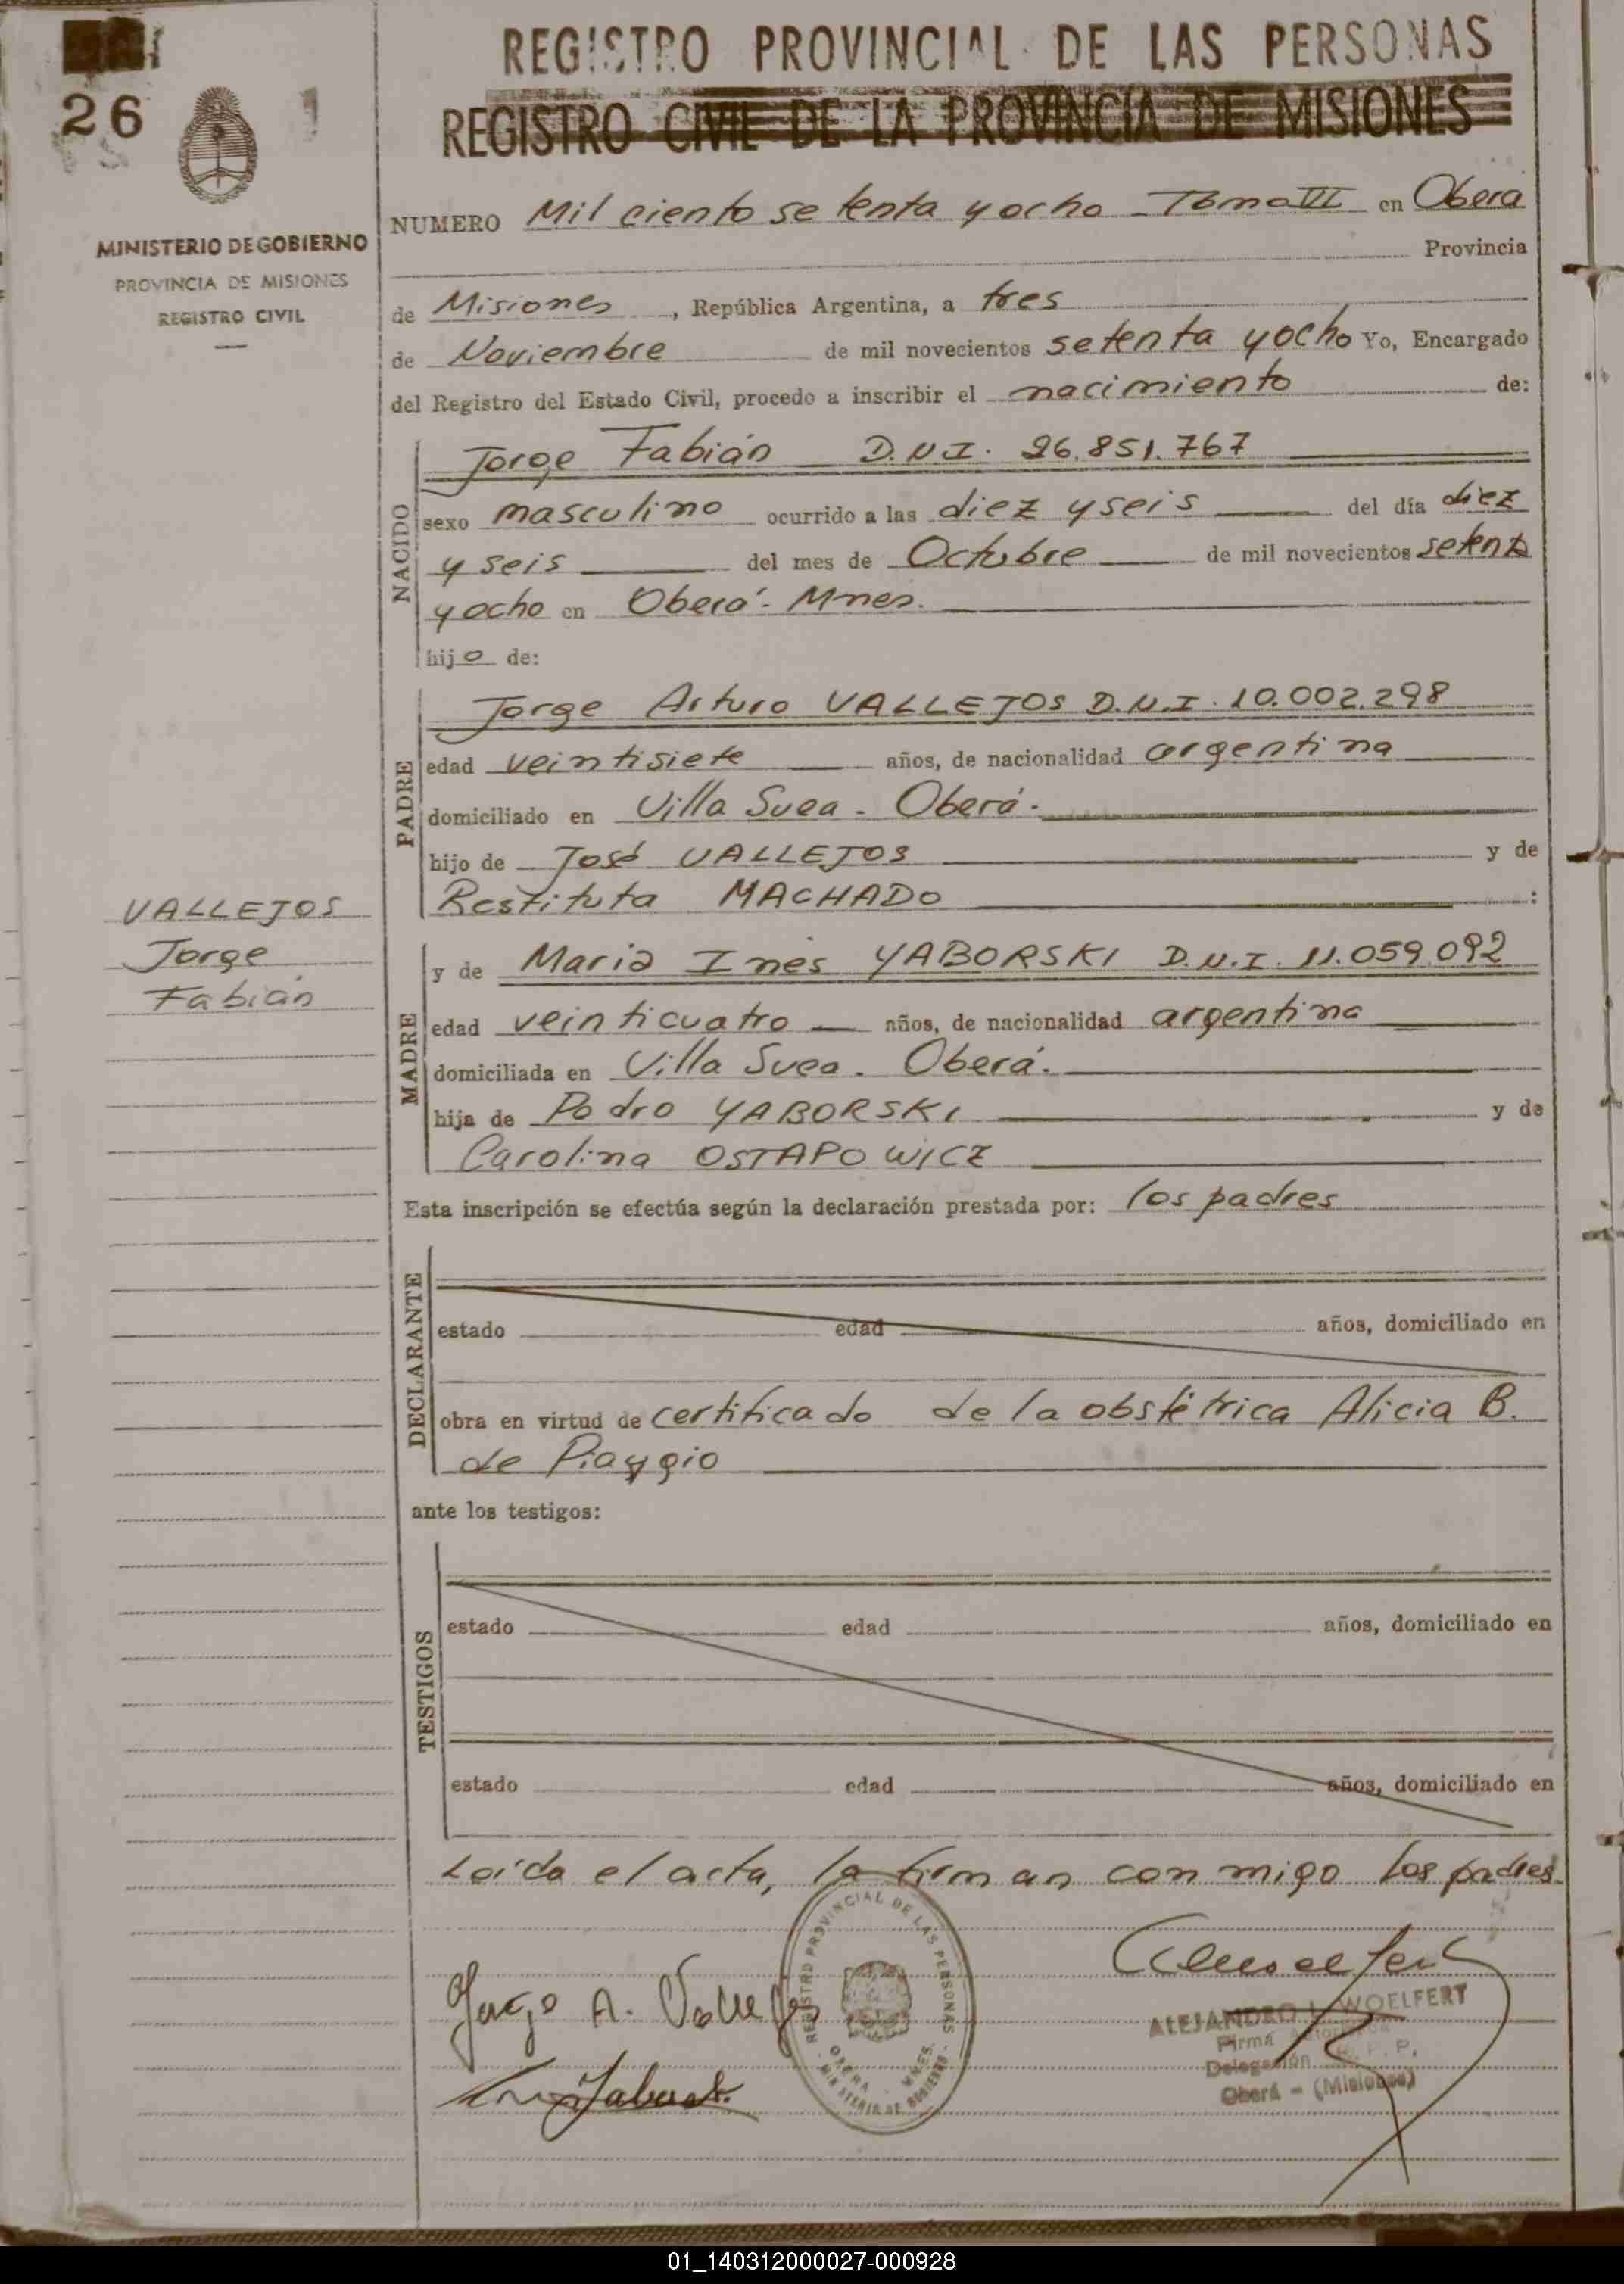 REGISTRO PROVINCIAL DE LAS PERSONAS
REGISTRO CIVIL DE LA PROVINCIA DE MISIONES
26
MINISTERIO DE GOBIERNO
PROVINCIA DE MISIONES
REGISTRO CIVIL
NUMERO Mil ciento setenta y ocho Tomo VI en Oberá
Provincia
de Misiones, República Argentina, a tres
de Noviembre de mil novecientos setenta y ocho Yo, Encargado
del Registro del Estado Civil, procedo a inscribir el nacimiento de:
NACIDO
Jorge Fabián D.N.I. 26.851.767
sexo masculino ocurrido a las diez y seis del día diez
y seis del mes de Octubre de mil novecientos setenta
y ocho en Oberá - Mnes.
hijo de:
PADRE
Jorge Arturo VALLEJOS D.N.I. 10.002.298
edad veintisiete años, de nacionalidad argentina
domiciliado en Villa Suea - Oberá.
hijo de José VALLEJOS y de
Restituta MACHADO :
VALLEJOS
Jorge
Fabián
MADRE
y de Maria Inés YABORSKI D.N.I. 11.059.092
edad veinticuatro años, de nacionalidad argentina
domiciliada en Villa Suea. Oberá.
hija de Pedro YABORSKI y de
Carolina OSTAPOWICZ
Esta inscripción se efectúa según la declaración prestada por: los padres
DECLARANTE
estado edad años, domiciliado en
obra en virtud de certificado de la obstétrica Alicia B.
de Piaggio
ante los testigos:
TESTIGOS
estado edad años, domiciliado en
estado edad años, domiciliado en
Leída el acta, la firman con migo los padres
REGISTRO PROVINCIAL DE LAS PERSONAS
OBERA - MNES.
MINISTERIO DE GOBIERNO
Jorge A. Vallejos
ALEJANDRO L. WOELFERT
Firma
Delegación R. P. P.
Oberá - (Misiones)
01_140312000027-000928